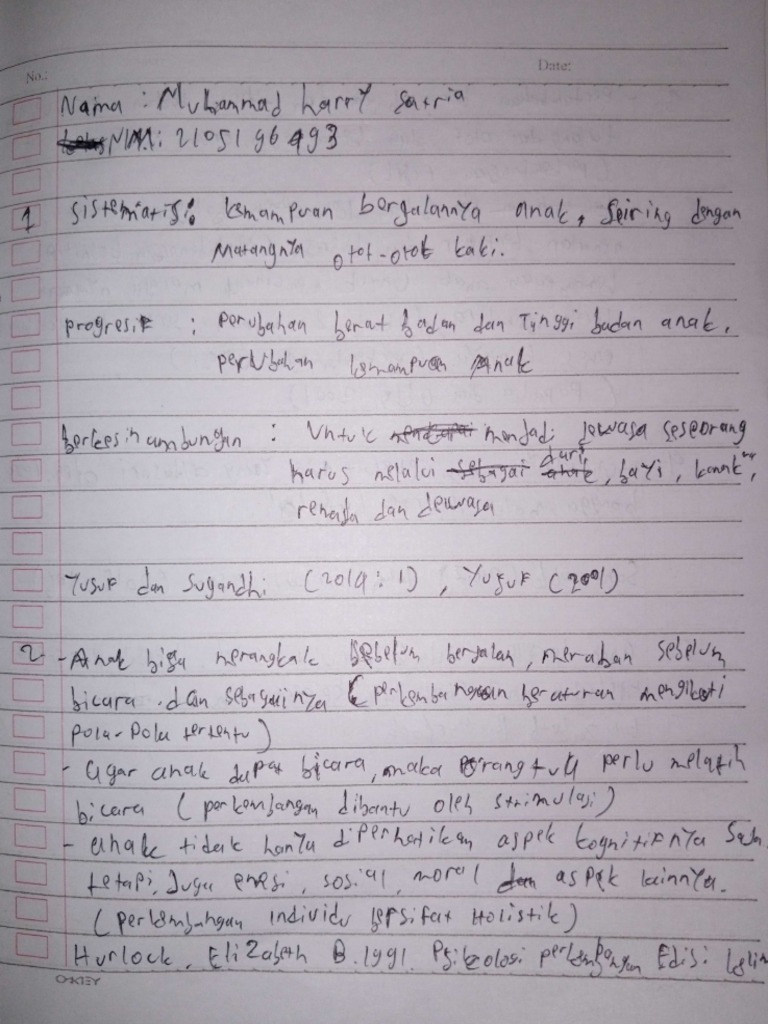 No.: Date:
Nama : Muhammad harry satria
NIM: 2105196493
1 sistematis: kemampuan bergalannya anak, Seiring dengan
Matangnya otot-otot kaki.
progresif : perubahan berat badan dan Tinggi badan anak,
perubahan kemampuan anak
berkesinambungan : Untuk menjadi dewasa seseorang
harus melalui dari, bayi, kanak",
remaja dan dewasa
Yusuf dan Sugandhi (2014:1), Yusuf (2001)
2 - Anak bisa merangkak sebelum berjalan, meraban sebelum
bicara .dan sebagainya (perkembangan beraturan mengikuti
pola-pola tertentu)
- agar anak dapat bicara, maka orang tua perlu melatih
bicara (perkembangan dibantu oleh stimulasi)
- anak tidak hanya diperhatikan aspek kognitifnya Saja
tetapi, Juga emosi, sosial, moral aspek lainnya.
(perkembangan individu bersifat Holistik)
Hurlock, Elizabeth B.1991. Psikologi perkembangan Edisi kelima
OKEY